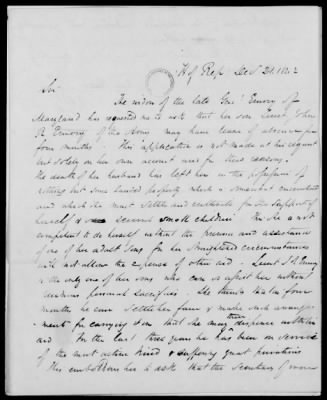 H of Rep Dec 21. 1842
Sir
The widow of the late Genl Emory of
Maryland has requested me to ask that her son Lieut John
R Emory of the Army may have leave of absence for
four months. This application is not made at his request
but solely on her own account and for these reasons.
The death of her husband has left her in the possession of
nothing but some landed property which is somewhat encumbered
and which she must settle and cultivate for the support of
herself & several small children. This she is not
competent to do herself without the presence and assistance
of one of her adult sons for her straightened circumstances
will not allow the expense of other aid. Lieut J R Emory
is the only one of her sons who can assist her without
ruinous personal sacrifices. She thinks in four
months he can settle her farm & make such arrange-
ments for carrying it on that she may then dispense with his
aid. For the last three years he has been on service
of the most active kind & suffering great privations
this emboldens her to ask that the Secretary of war